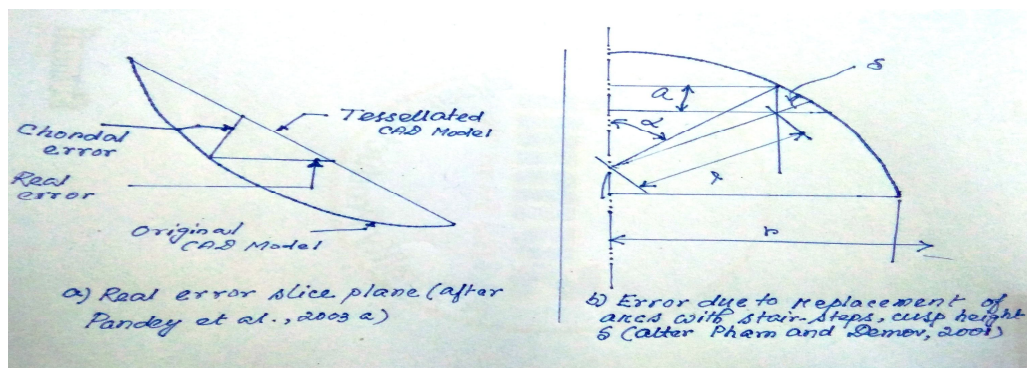 Chordal
error
Tessellated
CAD Model
Real
error
Original
CAD Model
a) Real error slice plane (after
Pandey et al., 2003 a)
δ
a
α
r
b) Error due to Replacement of
arcs with stair-steps, cusp height
δ (after Pham and Demov, 2001)